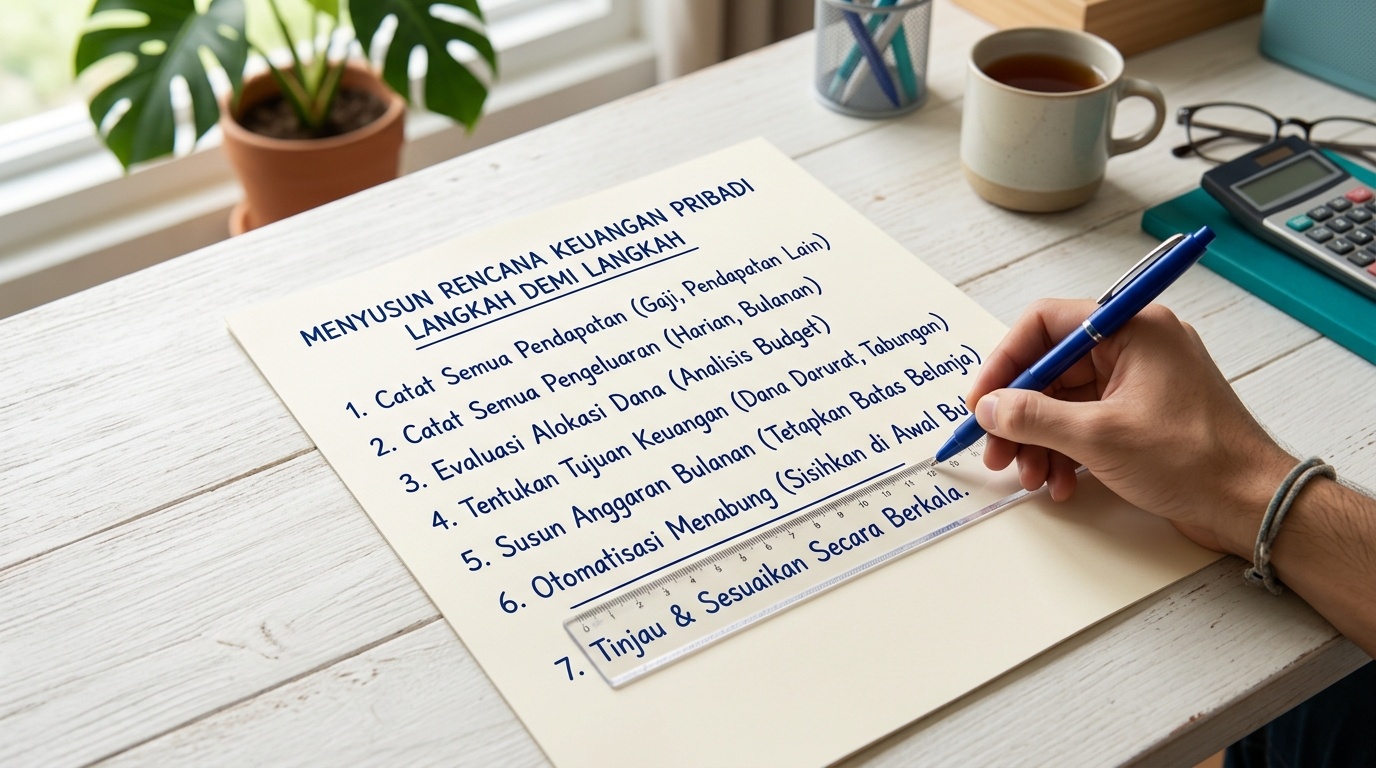 MENYUSUN RENCANA KEUANGAN PRIBADI
LANGKAH DEMI LANGKAH
1. Catat Semua Pendapatan (Gaji, Pendapatan Lain)
2. Catat Semua Pengeluaran (Harian, Bulanan)
3. Evaluasi Alokasi Dana (Analisis Budget)
4. Tentukan Tujuan Keuangan (Dana Darurat, Tabungan)
5. Susun Anggaran Bulanan (Tetapkan Batas Belanja)
6. Otomatisasi Menabung (Sisihkan di Awal
7. Tinjau & Sesuaikan Secara Berkala.